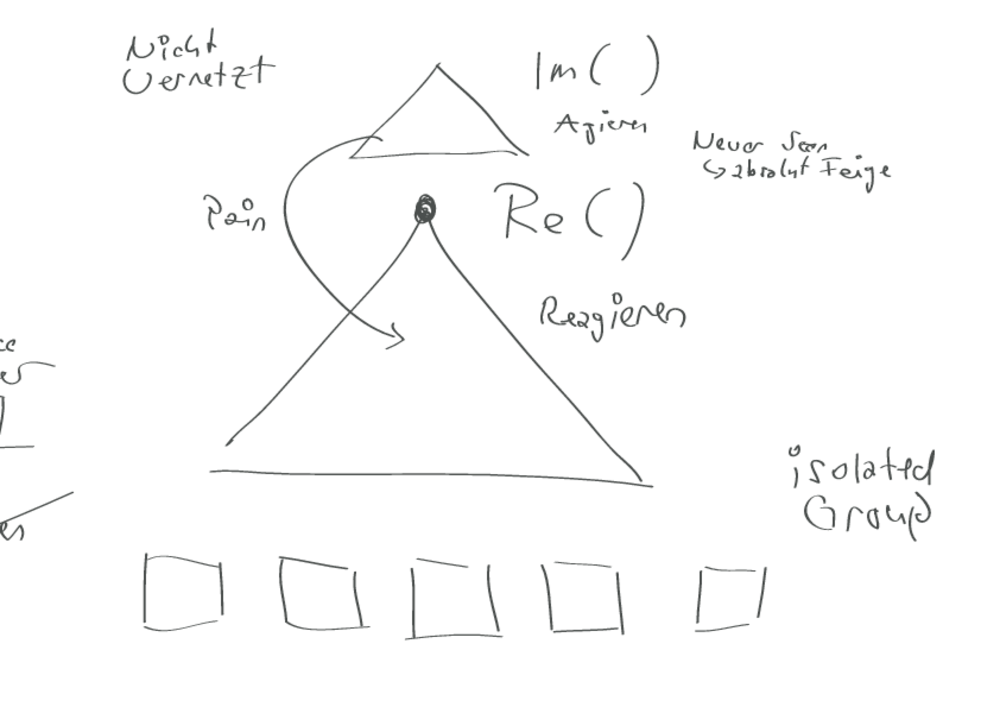 Nicht
Vernetzt
Im( )
Agieren
Never Seen
↳ absolut Feige
Pain
Re()
Reagieren
isolated
Group